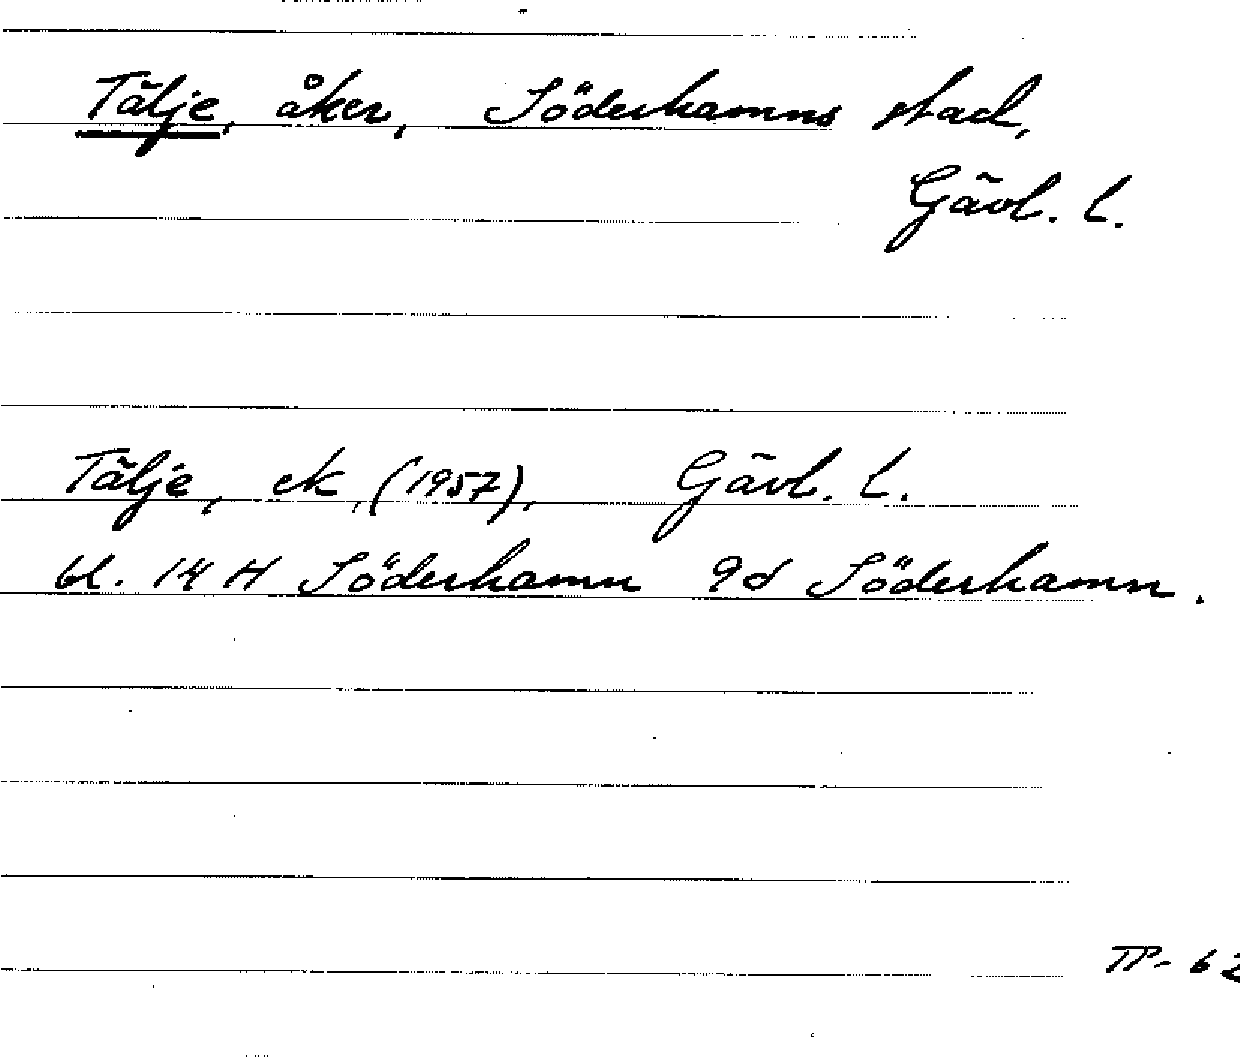 Tälje, åker, Söderhamns stad,
Gävl. l.
Tälje, ek, (1957), Gävl. l.
bl. 14 H Söderhamn 9d Söderhamn.
TP- 62